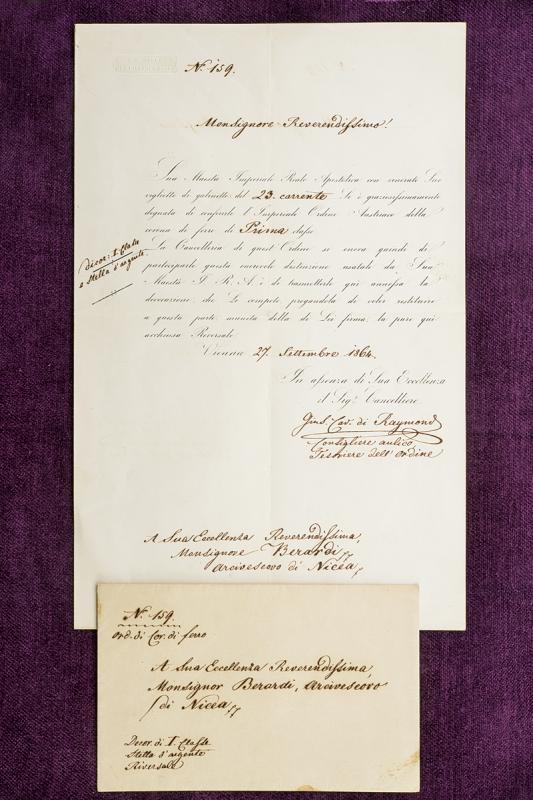 N. 159.
Monsignore Reverendissimo!
Sua Maestà Imperiale Reale Apostolica con venerato Suo
viglietto di gabinetto del 23. corrente Si è graziosissimamente
degnata di conferirle l'Imperiale Ordine Austriaco della
corona di ferro di Prima classe
La Cancelleria di quest'Ordine si onora quindi di
parteciparle questa onorevole distinzione usatale da Sua
Maestà I. R. A. e di trasmetterle qui annessa la
decorazione che Le compete, pregandola di voler restituire
a questa parte munita della di Lei firma, la pure qui
acchiusa Reversale
decor: I. Classe
e Stella d'argento
Vienna 27. Settembre 1864.
In assenza di Sua Eccellenza
il Sigr. Cancelliere
Cav. di Raymond
Consigliere aulico
Tesoriere dell'Ordine
A Sua Eccellenza Reverendissima,
Monsignore Berardi
Arcivescovo di Nicea
N. 159.
Ord. di Cor. di ferro
A Sua Eccellenza Reverendissima,
Monsignor Berardi, Arcivescovo
di Nicea
Decor. di I. Classe
Stella d'argento
Riversale